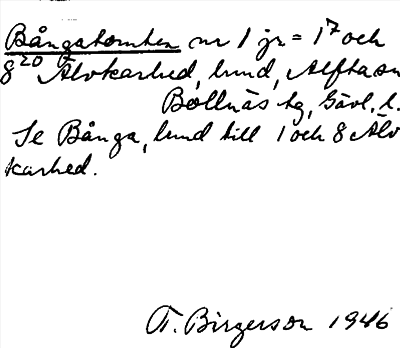 Bångatomten nr 1 jr = 1⁷ och
8²⁰ Älvkarhed, lund, Alfta sn
Bollnäs tg, Gävl. l.
Se Bånga, lund till 1 och 8 Älv
karhed.
T. Birgerson 1946